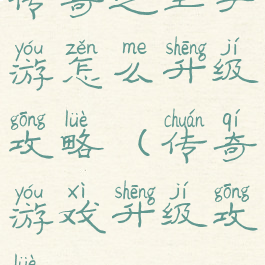 yóu zěn me shēng jí
游怎么升级
gōng lüè chuán qí
攻略（传奇
yóu xì shēng jí gōng
游戏升级攻
lüè